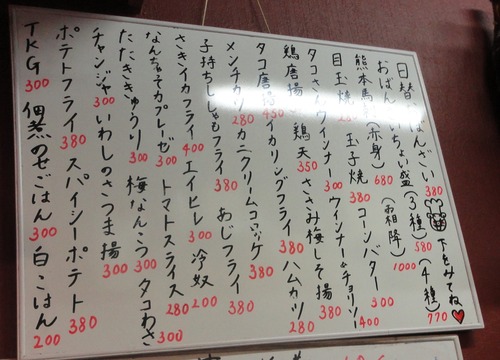 日替 ばんざい 380 下をみてね
おばん いちょい盛(3種)580(4種)770
熊本馬 (赤身)680(霜降)1000
目玉焼 玉子焼 380 コーンバター 300
タコさんウィンナー 300 ウィンナー&チョリソー 400
鶏唐揚 450 鶏天 350 ささみ梅しそ揚 380
タコ唐揚 イカリングフライ 380 ハムカツ 280
メンチカツ 280 カニクリームコロッケ 380
子持ちししゃもフライ 380 あじフライ 380
さきイカフライ 400 エイヒレ 300 冷奴 200
なんちゃってカプレーゼ 300 トマトスライス 280
たたききゅうり 300 梅なんこう 300 タコわさ 300
チャンジャ 300 いわしのさつま揚 300
ポテトフライ 380 スパイシーポテト 380
TKG 300 佃煮のせごはん 300 白ごはん 200